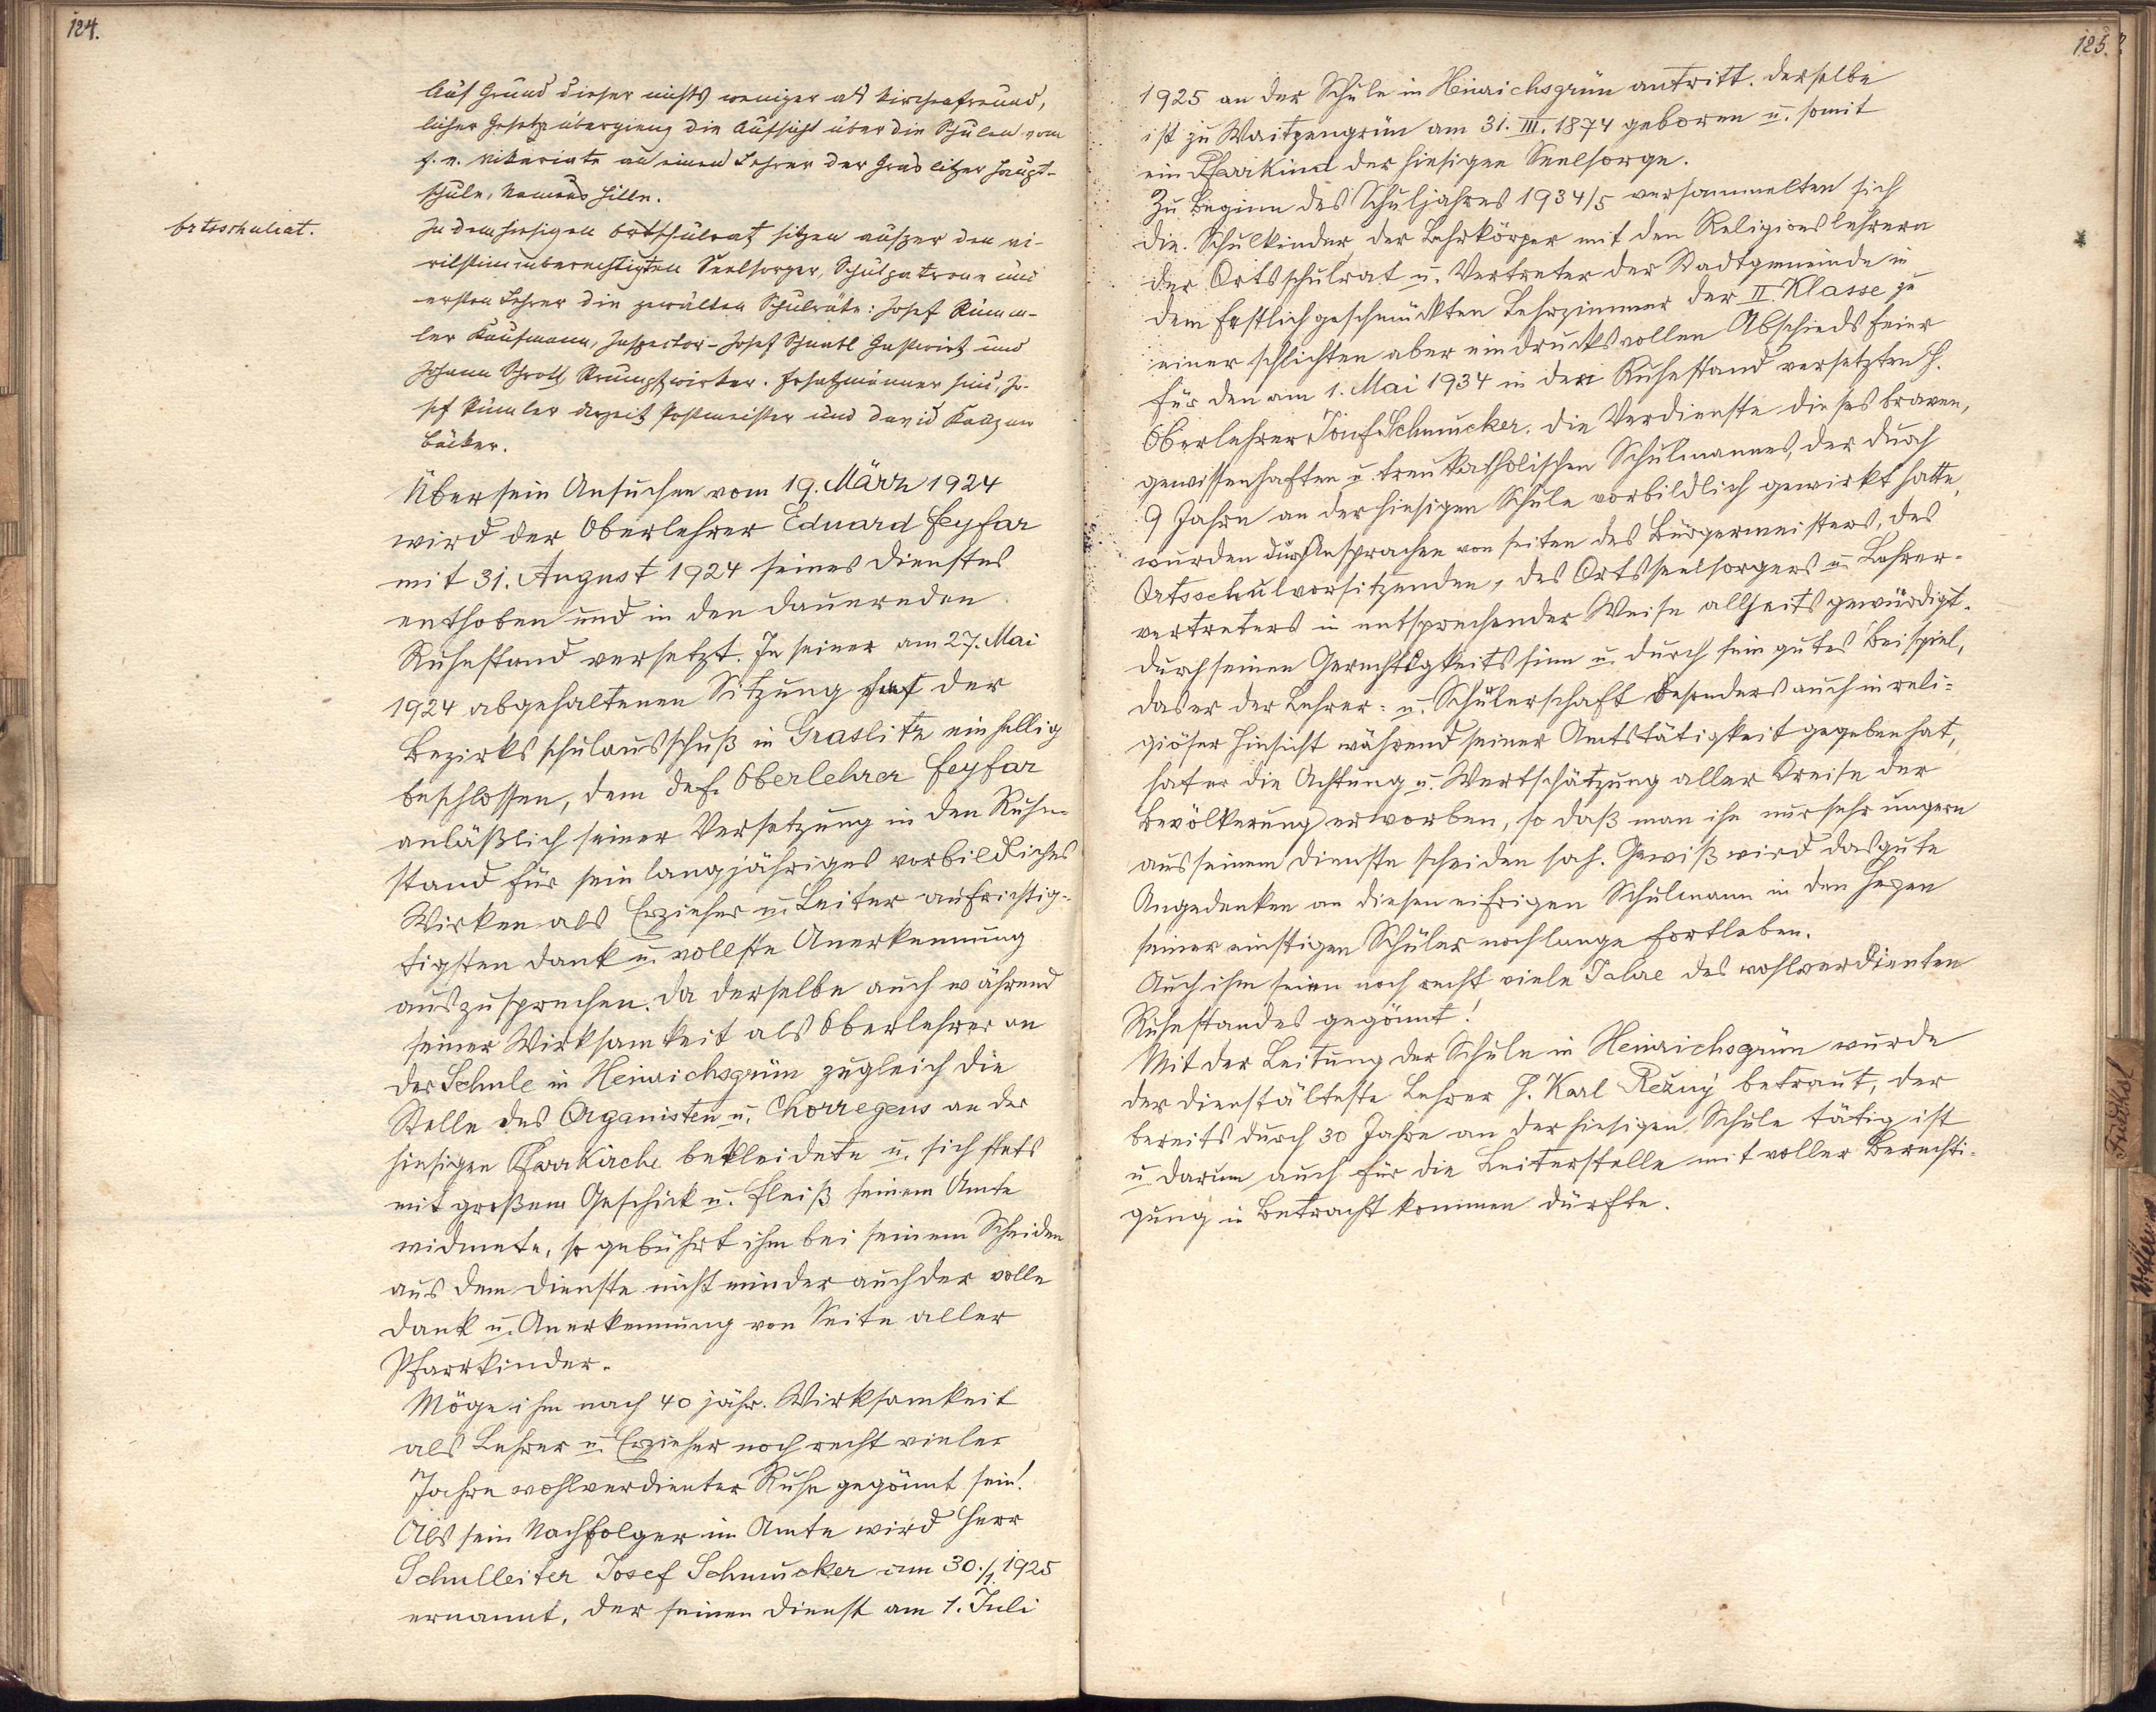 124.
Auf Grund dieser nichts weniger als kirchenfreund-
licher Gesetze übergieng die Aufsicht über die Schulen vom
f. e. Vikariate an einen Lehrer der Graslitzer Haupt-
schule, Namens Hille.
Ortsschulrat.
In dem hiesigen Ortschulrat sitzen ausser den vi-
rilstimmberechtigten Seelsorger, Schulpatrone und
ersten Lehrer die gewälten Schulräte: Josef
ler Kaufmann, Inspector - Josef Gastwirt und
Johann Schrott Strumpfwirker. Ersatzmänner sind, Jo-
sef derzeit Postmeister und David
Bäcker.
Über sein Ansuchen vom 19. März 1924
wird der Oberlehrer Eduard Feyfar
mit 31. August 1924 seines Dienstes
enthoben und in den dauernden
Ruhestand versetzt. In seiner am 27. Mai
1924 abgehaltenen Sitzung hat der
Bezirksschulausschuß in Graslitz einhellig
beschlossen, dem def. Oberlehrer Feyfar
anläßlich seiner Versetzung in den Ruhe-
stand für sein langjähriges vorbildliches
Wirken als Erzieher u. Leiter aufrichtig-
tigsten Dank u. vollste Anerkennung
auszusprechen. Da derselbe auch während
seiner Wirksamkeit als Oberlehrer an
der Schule in Heinrichsgrün zugleich die
Stelle des Organisten u. Chorregens an der
hiesigen Pfarrkirche bekleidete u. sich stets
mit großem Geschick u. Fleiß seinem Amte
widmete, so gebührt ihm bei seinem Scheiden
aus dem Dienste nicht minder auch der volle
Dank u. Anerkennung von Seite aller
Pfarrkinder.
Möge ihm nach 40 jähr. Wirksamkeit
als Lehrer u. Erzieher noch recht vieler
Jahre wohlverdienter Ruhe gegönnt sein!
Als sein Nachfolger im Amte wird Herr
Schulleiter Josef Schmucker am 30./1. 1925
ernannt, der seinen Dienst am 1. Juli
125.
1925 an der Schule in Heinrichsgrün antritt. Derselbe
ist zu Waitzengrün am 31. III. 1874 geboren u. somit
ein Pfarrkind der hiesigen Seelsorge.
Zu Beginn des Schuljahres 1934/5 versammelten sich
die Schulkinder, der Lehrkörper mit den Religionslehrern
der Ortsschulrat u. Vertreter der Stadtgemeinde in
dem festlich geschmückten Lehrzimmer der II. Klasse zu
einer schlichten aber eindrucksvollen Abschiedsfeier
für den am 1. Mai 1934 in den Ruhestand versetzten H.
Oberlehrer Josef Schmucker. Die Verdienste dieses braven,
gewissenhaften u. treukatholischen Schulmannes, der durch
9 Jahre an der hiesigen Schule vorbildlich gewirkt hatte,
wurden durch Ansprachen von seiten des Bürgermeisters, des
Ortsschulvorsitzenden, des Ortsseelsorgers u. Lehrer-
vertreters in entsprechender Weise allseits gewürdigt.
Durch seinen Gerechtigkeitssinn u. durch sein gutes Beispiel,
das er der Lehrer- u. Schülerschaft besonders auch in reli-
giöser Hinsicht während seiner Amtstätigkeit gegeben hat,
hat er die Achtung u. Wertschätzung aller Kreise der
Bevölkerung erworben, so daß man ihn nur sehr ungern
aus seinem Dienste scheiden sah. Gewiß wird das gute
Angedenken an diesen eifrigen Schulmann in den Herzen
seiner einstigen Schüler noch lange fortleben.
Auch ihm seien noch recht viele Jahre des wohlverdienten
Ruhestandes gegönnt!
Mit der Leitung der Schule in Heinrichsgrün wurde
der dienstälteste Lehrer H. Karl Režný betraut, der
bereits durch 30 Jahre an der hiesigen Schule tätig ist
u. darum auch für die Leiterstelle mit voller Berechti-
gung in Betracht kommen dürfte.